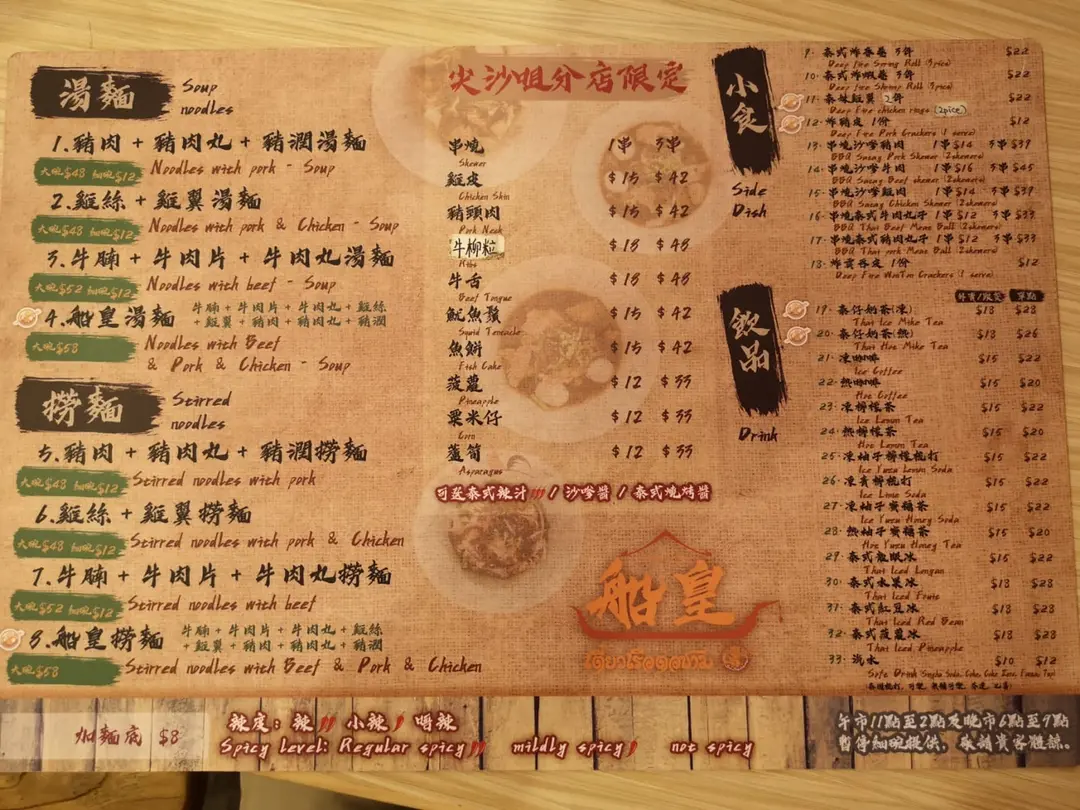 湯麵
Soup
noodles
1.豬肉 + 豬肉丸 + 豬潤湯麵
大碗$48 細碗$12
Noodles with pork - Soup
2.雞絲 + 雞翼湯麵
大碗$48 細碗$12
Noodles with pork & Chicken - Soup
3.牛腩 + 牛肉片 + 牛肉丸湯麵
大碗$52 細碗$12
Noodles with beef - Soup
4.船皇湯麵
牛腩 + 牛肉片 + 牛肉丸 + 雞絲
+ 雞翼 + 豬肉 + 豬肉丸 + 豬潤
大碗$58
Noodles with Beef
& Pork & Chicken - Soup
撈麵
Stirred
noodles
5.豬肉 + 豬肉丸 + 豬潤撈麵
大碗$48 細碗$12
Stirred noodles with pork
6.雞絲 + 雞翼撈麵
大碗$48 細碗$12
Stirred noodles with pork & Chicken
7.牛腩 + 牛肉片 + 牛肉丸撈麵
大碗$52 細碗$12
Stirred noodles with beef
8.船皇撈麵
牛腩 + 牛肉片 + 牛肉丸 + 雞絲
+ 雞翼 + 豬肉 + 豬肉丸 + 豬潤
大碗$58
Stirred noodles with Beef & Pork & Chicken
尖沙咀分店限定
串燒 1串 3串
Skewer
雞皮 $15 $42
Chicken Skin
豬頸肉 $15 $42
Pork Neck
牛柳粒 $18 $48
牛舌 $18 $48
Beef Tongue
魷魚鬚 $15 $42
Squid Tentacle
魚餅 $15 $42
Fish Cake
菠蘿 $12 $33
Pineapple
粟米仔 $12 $33
Corn
蘆筍 $12 $33
Asparagus
可送泰式辣汁 / 沙嗲醬 / 泰式燒烤醬
船皇
小食
Side
Dish
9. 泰式炸春卷 3件 $22
Deep Fire Spring Roll (3pics)
10. 泰式炸蝦卷 3件 $22
Deep Fire Shrimp Roll (3pics)
11. 泰妹雞翼 2件 $22
Deep Fire chicken rings (2pice)
12. 炸豬皮 1份 $12
Deep Fire Pork Crackers (1 serve)
13. 串燒沙嗲豬肉 1串$14 3串$39
BBQ Satay Pork Skewer (3skewers)
14. 串燒沙嗲牛肉 1串$16 3串$45
BBQ Satay Beef skewer (3skewers)
15. 串燒沙嗲雞肉 1串$14 3串$39
BBQ Satay Chicken Skewer (3skewers)
16. 串燒泰式牛肉丸子 1串$12 3串$33
BBQ Thai Beef Meat Ball (3skewers)
17. 串燒泰式豬肉丸子 1串$12 3串$33
BBQ Thai pork Meat Ball (3skewers)
18. 炸雲吞皮 1份 $12
Deep Fire WonTon Crackers (1 serve)
飲品
Drink
外賣/跟餐 單點
19. 泰仔奶茶(凍) $18 $28
Thai Ice Milk Tea
20. 泰仔奶茶(熱) $18 $26
Thai Hot Milk Tea
21. 凍咖啡 $15 $22
Ice Coffee
22. 熱咖啡 $15 $20
Hot Coffee
23. 凍檸檬茶 $15 $22
Ice Lemon Tea
24. 熱檸檬茶 $15 $20
Hot Lemon Tea
25. 凍柚子檸檬梳打 $15 $22
Ice Yuzu Lemon Soda
26. 凍青檸梳打 $15 $22
Ice Lime Soda
27. 凍柚子蜜糖茶 $15 $22
Ice Yuzu Honey Soda
28. 熱柚子蜜糖茶 $15 $20
Hot Yuzu Honey Tea
29. 泰式龍眼冰 $15 $22
Thai Iced Longan
30. 泰式水果冰 $18 $28
Thai Iced Fruit
31. 泰式紅豆冰 $18 $28
Thai Iced Red Bean
32. 泰式菠蘿冰 $18 $28
Thai Iced Pineapple
33. 汽水 $10 $12
加麵底 $8
辣度: 辣 小辣 唔辣
Spicy Level: Regular spicy mildly spicy not spicy
午市11點至2點及晚市6點至9點
暫停細碗提供, 敬請貴客體諒。